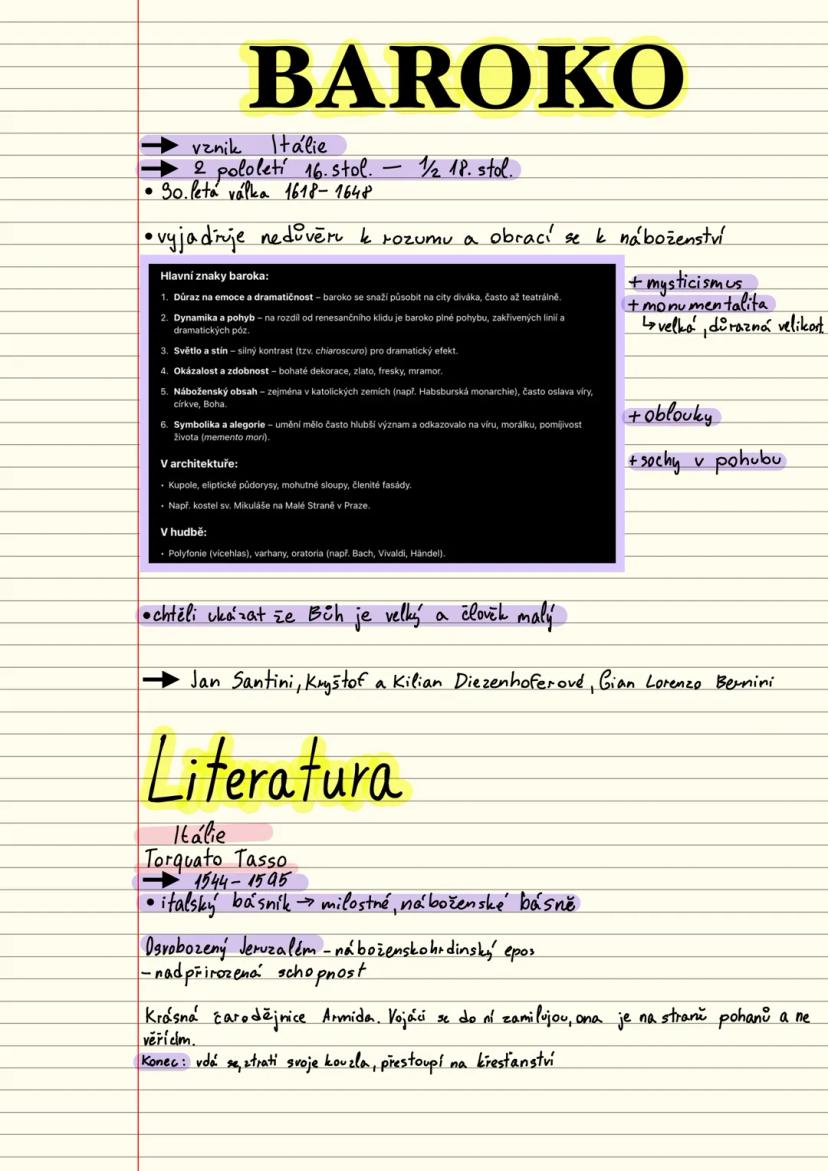 BAROKO
→ vznik Itálie
→ 2 pololetí 16. stol. — 1/2 18. stol.
• 30. letá válka 1618 - 1648
• vyjadřuje nedůvěru k rozumu a obrací se k náboženství
Hlavní znaky baroka:
1. Důraz na emoce a dramatičnost – baroko se snaží působit na city diváka, často až teatrálně.
2. Dynamika a pohyb – na rozdíl od renesančního klidu je baroko plné pohybu, zakřivených linií a
dramatických póz.
3. Světlo a stín – silný kontrast (tzv. chiaroscuro) pro dramatický efekt.
4. Okázalost a zdobnost – bohaté dekorace, zlato, fresky, mramor.
5. Náboženský obsah – zejména v katolických zemích (např. Habsburská monarchie), často oslava víry,
církve, Boha.
6. Symbolika a alegorie – umění mělo často hlubší význam a odkazovalo na víru, morálku, pomíjivost
života (memento mori).
V architektuře:
• Kupole, eliptické půdorysy, mohutné sloupy, členité fasády.
• Např. kostel sv. Mikuláše na Malé Straně v Praze.
V hudbě:
• Polyfonie (vícehlas), varhany, oratoria (např. Bach, Vivaldi, Händel).
+ mysticismus
+ monumentalita
↳ velká, důrazná velikost
+ oblouky
+ sochy v pohubu
• chtěli ukázat že Bůh je velký a člověk malý
→ Jan Santini, Kryštof a Kilian Diezenhoferové, Gian Lorenzo Bernini
Literatura
Itálie
Torquato Tasso
→ 1544 - 1595
• italský básník → milostné, náboženské básně
Osvobozený Jeruzalém - náboženskohrdinský epos
- nadpřirozená schopnost
Krásná čarodějnice Armida. Vojáci se do ní zamilujou, ona je na straně pohanů a ne
věřícím.
Konec: vdá se, ztratí svoje kouzla, přestoupí na křesťanství